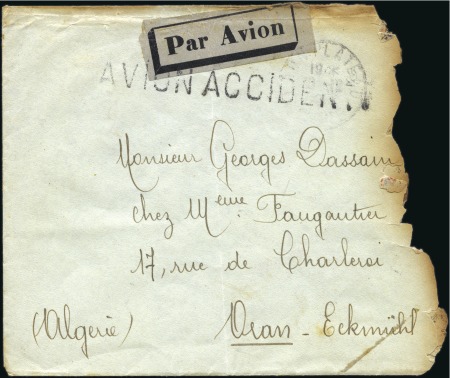 Par Avion
AVION ACCIDENT
Monsieur Georges Dassain
chez Mème Faugautier
17, rue de Charleroi
(Algerie) Oran - Eckmühl